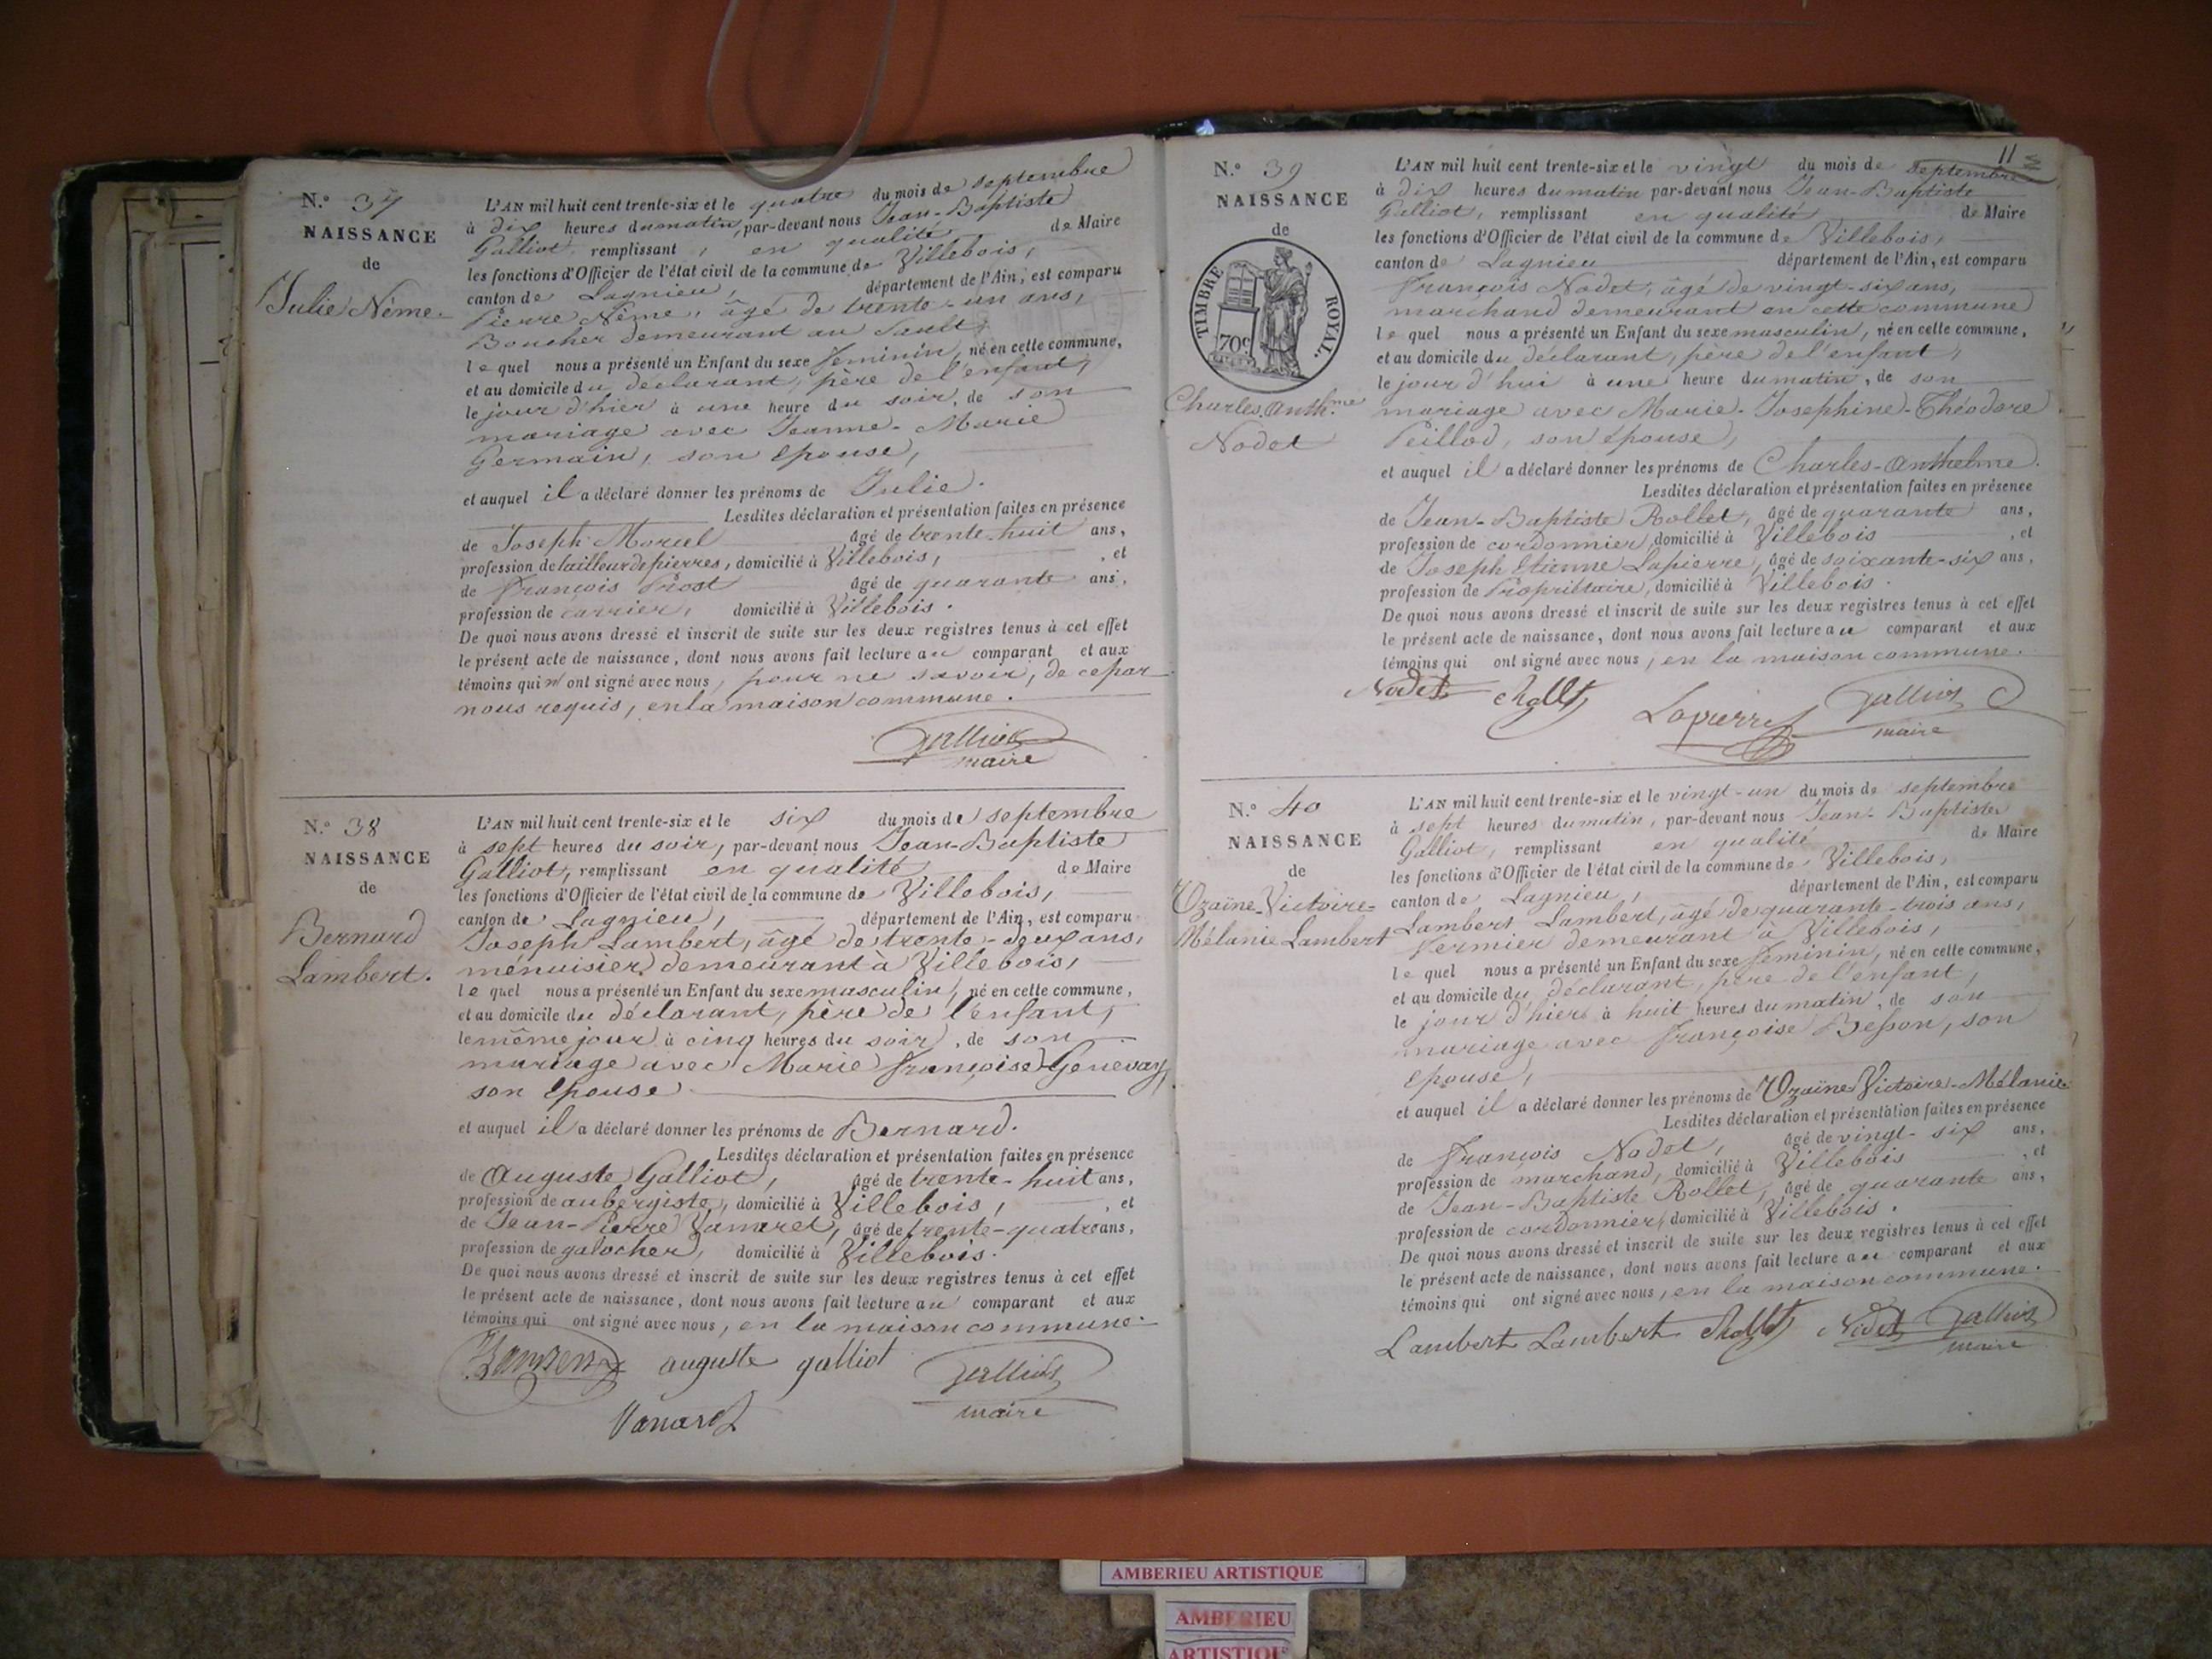 N.° 37
NAISSANCE
de
Julie Néme.
L'AN mil huit cent trente-six et le quatre du mois de septembre
à dix heures du matin, par-devant nous Jean-Baptiste
Galliot, remplissant, en qualité de Maire
les fonctions d'Officier de l'état civil de la commune de Villebois,
canton de Lagnieu, département de l'Ain, est comparu
Pierre Néme, âgé de trente-un ans,
Boucher demeurant au Sault,
le quel nous a présenté un Enfant du sexe féminin, né en cette commune,
et au domicile du déclarant, père de l'enfant,
le jour d'hier à une heure du soir, de son
mariage avec Jeanne-Marie
Germain, son épouse,
et auquel il a déclaré donner les prénoms de Julie.
Lesdites déclaration et présentation faites en présence
de Joseph Morel âgé de trente-huit ans,
profession de tailleur de pierres, domicilié à Villebois, , et
de François Prost âgé de quarante ans,
profession de carrier, domicilié à Villebois.
De quoi nous avons dressé et inscrit de suite sur les deux registres tenus à cet effet
le présent acte de naissance, dont nous avons fait lecture au comparant et aux
témoins qui n'ont signé avec nous, pour ne savoir, de ce par
nous requis, en la maison commune.
Galliot
maire
N.° 38
NAISSANCE
de
Bernard
Lambert.
L'AN mil huit cent trente-six et le six du mois de septembre
à sept heures du soir, par-devant nous Jean-Baptiste
Galliot, remplissant en qualité de Maire
les fonctions d'Officier de l'état civil de la commune de Villebois,
canton de Lagnieu, département de l'Ain, est comparu
Joseph Lambert, âgé de trente-deux ans,
menuisier demeurant à Villebois,
le quel nous a présenté un Enfant du sexe masculin, né en cette commune,
et au domicile du déclarant, père de l'enfant,
le même jour à cinq heures du soir, de son
mariage avec Marie Françoise Genevay,
son épouse
et auquel il a déclaré donner les prénoms de Bernard.
Lesdites déclaration et présentation faites en présence
de Auguste Galliot, âgé de trente-huit ans,
profession de aubergiste, domicilié à Villebois, , et
de Jean-Pierre Vanaret, âgé de trente-quatre ans,
profession de galocher, domicilié à Villebois.
De quoi nous avons dressé et inscrit de suite sur les deux registres tenus à cet effet
le présent acte de naissance, dont nous avons fait lecture au comparant et aux
témoins qui ont signé avec nous, en la maison commune.
auguste galliot Galliot
Vanaret maire
11
N.° 39
NAISSANCE
de
TIMBRE ROYAL.
70c
Charles Anth.me
Nodet
L'AN mil huit cent trente-six et le vingt du mois de septembre
à dix heures du matin par-devant nous Jean-Baptiste
Galliot, remplissant en qualité de Maire
les fonctions d'Officier de l'état civil de la commune de Villebois,
canton de Lagnieu département de l'Ain, est comparu
François Nodet, âgé de vingt-six ans,
marchand demeurant en cette commune
le quel nous a présenté un Enfant du sexe masculin, né en cette commune,
et au domicile du déclarant, père de l'enfant,
le jour d'hui à une heure du matin, de son
mariage avec Marie-Josephine-Théodore
Peillod, son épouse,
et auquel il a déclaré donner les prénoms de Charles-Anthelme.
Lesdites déclaration et présentation faites en présence
de Jean-Baptiste Rollet, âgé de quarante ans,
profession de cordonnier, domicilié à Villebois , et
de Joseph Etienne Lapierre, âgé de soixante-six ans,
profession de Propriétaire, domicilié à Villebois.
De quoi nous avons dressé et inscrit de suite sur les deux registres tenus à cet effet
le présent acte de naissance, dont nous avons fait lecture au comparant et aux
témoins qui ont signé avec nous, en la maison commune.
Nodet Rollet Lapierre Galliot
maire
N.° 40
NAISSANCE
de
Ozaïne-Victoire-
Mélanie Lambert
L'AN mil huit cent trente-six et le vingt-un du mois de septembre
à sept heures du matin, par-devant nous Jean-Baptiste
Galliot, remplissant en qualité de Maire
les fonctions d'Officier de l'état civil de la commune de Villebois,
canton de Lagnieu, département de l'Ain, est comparu
Lambert Lambert, âgé de quarante-trois ans,
Fermier demeurant à Villebois,
le quel nous a présenté un Enfant du sexe féminin, né en cette commune,
et au domicile du déclarant, père de l'enfant,
le jour d'hier à huit heures du matin, de son
mariage avec Françoise Besson, son
épouse,
et auquel il a déclaré donner les prénoms de Ozaïne Victoire-Mélanie
Lesdites déclaration et présentation faites en présence
de François Nodet, âgé de vingt-six ans,
profession de marchand, domicilié à Villebois , et
de Jean-Baptiste Rollet, âgé de quarante ans,
profession de cordonnier, domicilié à Villebois.
De quoi nous avons dressé et inscrit de suite sur les deux registres tenus à cet effet
le présent acte de naissance, dont nous avons fait lecture au comparant et aux
témoins qui ont signé avec nous, en la maison commune.
Lambert Lambert Rollet Nodet Galliot
maire
AMBERIEU ARTISTIQUE
AMBERIEU
ARTISTIQUE